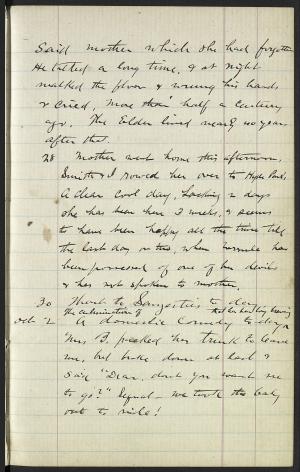 said mother which she had forgotten
He talked a long time, & at night
walked the floor & wrung his hands
& cried, more than half a century
ago. The Elder lived nearly 20 years
after this.
28 Mother went home this afternoon.
Smith & I rowed her over to Hyde Park.
A clear cool day. Lacking 2 days
she has been here 3 weeks, & seems
to have been happy all the time till
the last day or two, when has
been possessed of one of her devils
& has not spoken to mother.
30 Went to Saugerties to day
Oct 2 A domestic Comedy to day
the culmination of
Mrs. B. packed her trunk to leave
me, but broke down at last &
said "Dear, dont you want me
to go?" Sequel - we took the baby
out to ride!